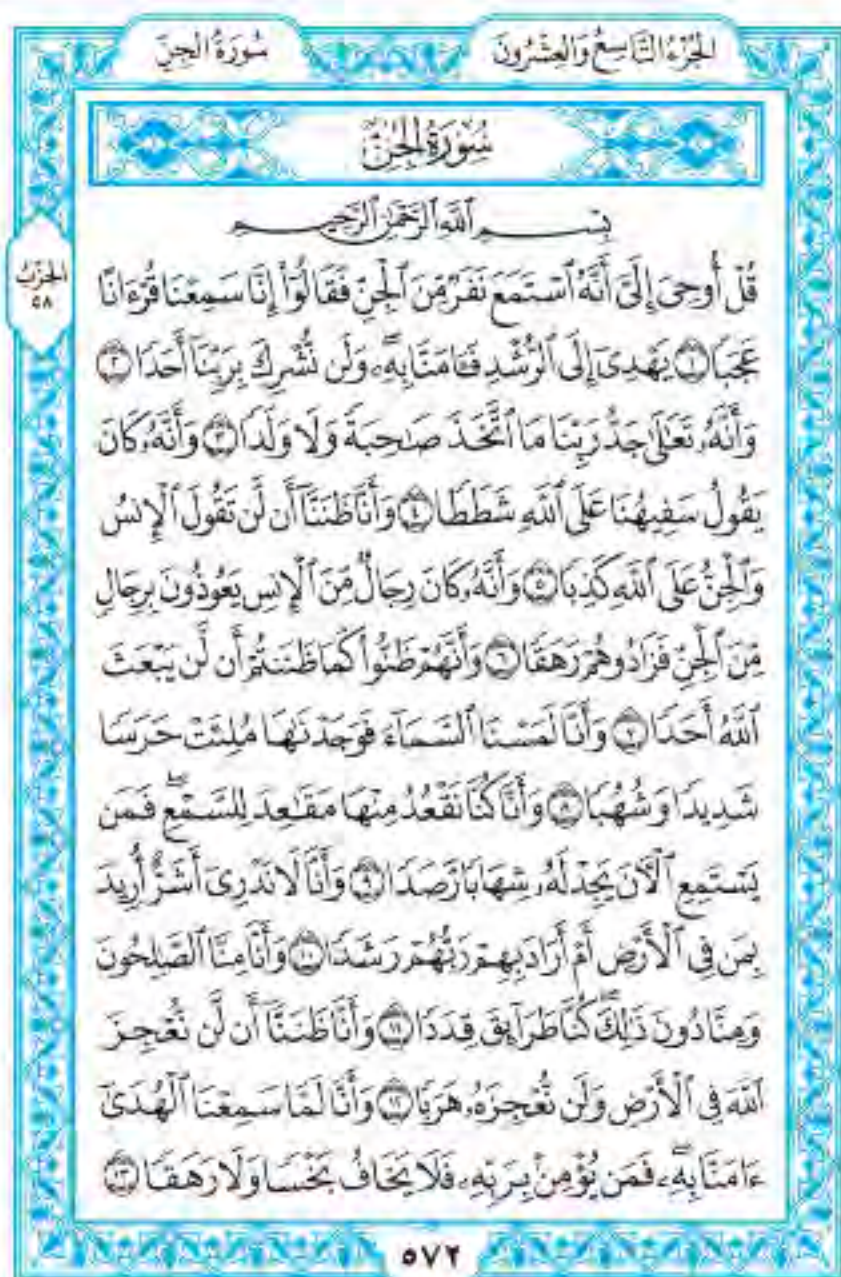 الجُزْءُ التَّاسِعُ وَالعِشْرُونَ سُورَةُ الجِنّ
سُورَةُ الجِنِّ
بِسْمِ ٱللَّهِ ٱلرَّحْمَٰنِ ٱلرَّحِيمِ
الحِزْبُ
٥٨
قُلْ أُوحِىَ إِلَىَّ أَنَّهُ ٱسْتَمَعَ نَفَرٌ مِّنَ ٱلْجِنِّ فَقَالُوٓا۟ إِنَّا سَمِعْنَا قُرْءَانًا
عَجَبًا ١ يَهْدِىٓ إِلَى ٱلرُّشْدِ فَـَٔامَنَّا بِهِۦ ۖ وَلَن نُّشْرِكَ بِرَبِّنَآ أَحَدًا ٢
وَأَنَّهُۥ تَعَٰلَىٰ جَدُّ رَبِّنَا مَا ٱتَّخَذَ صَٰحِبَةً وَلَا وَلَدًا ٣ وَأَنَّهُۥ كَانَ
يَقُولُ سَفِيهُنَا عَلَى ٱللَّهِ شَطَطًا ٤ وَأَنَّا ظَنَنَّآ أَن لَّن تَقُولَ ٱلْإِنسُ
وَٱلْجِنُّ عَلَى ٱللَّهِ كَذِبًا ٥ وَأَنَّهُۥ كَانَ رِجَالٌ مِّنَ ٱلْإِنسِ يَعُوذُونَ بِرِجَالٍ
مِّنَ ٱلْجِنِّ فَزَادُوهُمْ رَهَقًا ٦ وَأَنَّهُمْ ظَنُّوا۟ كَمَا ظَنَنتُمْ أَن لَّن يَبْعَثَ
ٱللَّهُ أَحَدًا ٧ وَأَنَّا لَمَسْنَا ٱلسَّمَآءَ فَوَجَدْنَٰهَا مُلِئَتْ حَرَسًا
شَدِيدًا وَشُهُبًا ٨ وَأَنَّا كُنَّا نَقْعُدُ مِنْهَا مَقَٰعِدَ لِلسَّمْعِ ۖ فَمَن
يَسْتَمِعِ ٱلْـَٔانَ يَجِدْ لَهُۥ شِهَابًا رَّصَدًا ٩ وَأَنَّا لَا نَدْرِىٓ أَشَرٌّ أُرِيدَ
بِمَن فِى ٱلْأَرْضِ أَمْ أَرَادَ بِهِمْ رَبُّهُمْ رَشَدًا ١٠ وَأَنَّا مِنَّا ٱلصَّٰلِحُونَ
وَمِنَّا دُونَ ذَٰلِكَ ۖ كُنَّا طَرَآئِقَ قِدَدًا ١١ وَأَنَّا ظَنَنَّآ أَن لَّن نُّعْجِزَ
ٱللَّهَ فِى ٱلْأَرْضِ وَلَن نُّعْجِزَهُۥ هَرَبًا ١٢ وَأَنَّا لَمَّا سَمِعْنَا ٱلْهُدَىٰٓ
ءَامَنَّا بِهِۦ ۖ فَمَن يُؤْمِنۢ بِرَبِّهِۦ فَلَا يَخَافُ بَخْسًا وَلَا رَهَقًا ١٣
٥٧٢